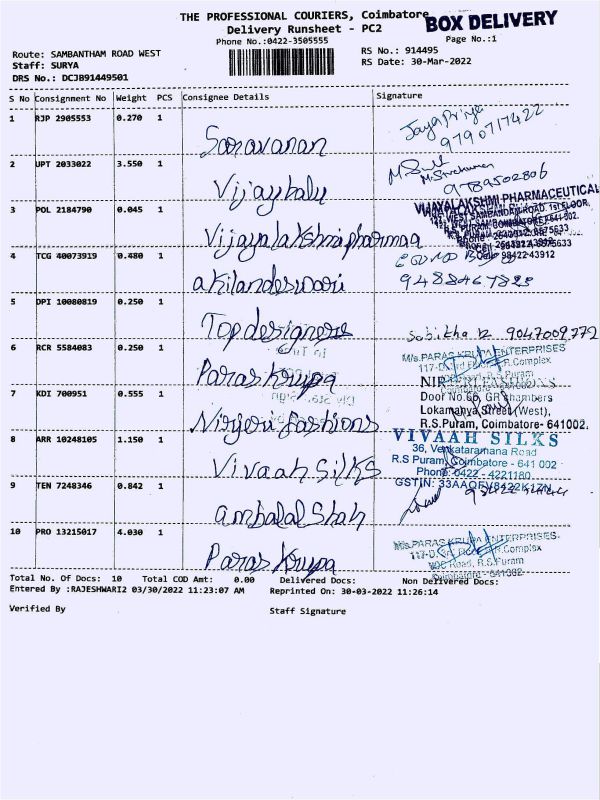 THE PROFESSIONAL COURIERS, Coimbatore
BOX DELIVERY
Delivery Runsheet - PC2
Phone No.:0422-3505555
Page No.:1
Route: SAMBANTHAM ROAD WEST
RS No.: 914495
Staff: SURYA
RS Date: 30-Mar-2022
DRS No.: DCJB91449501
S No Consignment No Weight PCS Consignee Details Signature
1 RJP 2905553 0.270 1
Saravanan
Jaya Priya
9790717422
2 UPT 2033022 3.550 1
Vijaybalu
9789502806
3 POL 2184790 0.045 1
Vijayalakshmi pharmaa
VIJAYALAKSHMI PHARMACEUTICAL
4 TCG 40073919 0.480 1
akilandeswari
5 DPI 10080819 0.250 1
Top designers
Sobitha R 9047009772
6 RCR 5584083 0.250 1
Paras Krupa
M/s.PARAS KRUPA ENTERPRISES
7 KDI 700951 0.555 1
Nirjeri fashions
Door No.66, GR chambers
Lokamanya Street (West),
R.S.Puram, Coimbatore- 641002.
8 ARR 10248105 1.150 1
Vivaah Silks
VIVAAH SILKS
36, Venkataramana Road
R.S Puram, Coimbatore - 641 002
Phone: 0422 - 4221180
9 TEN 7248346 0.842 1
ambalal Shah
10 PRO 13215017 4.030 1
Paras Krupa
M/s.PARAS KRUPA ENTERPRISES
Total No. Of Docs: 10 Total COD Amt: 0.00 Delivered Docs: Non Delivered Docs:
Entered By :RAJESHWARI2 03/30/2022 11:23:07 AM Reprinted On: 30-03-2022 11:26:14
Verified By
Staff Signature